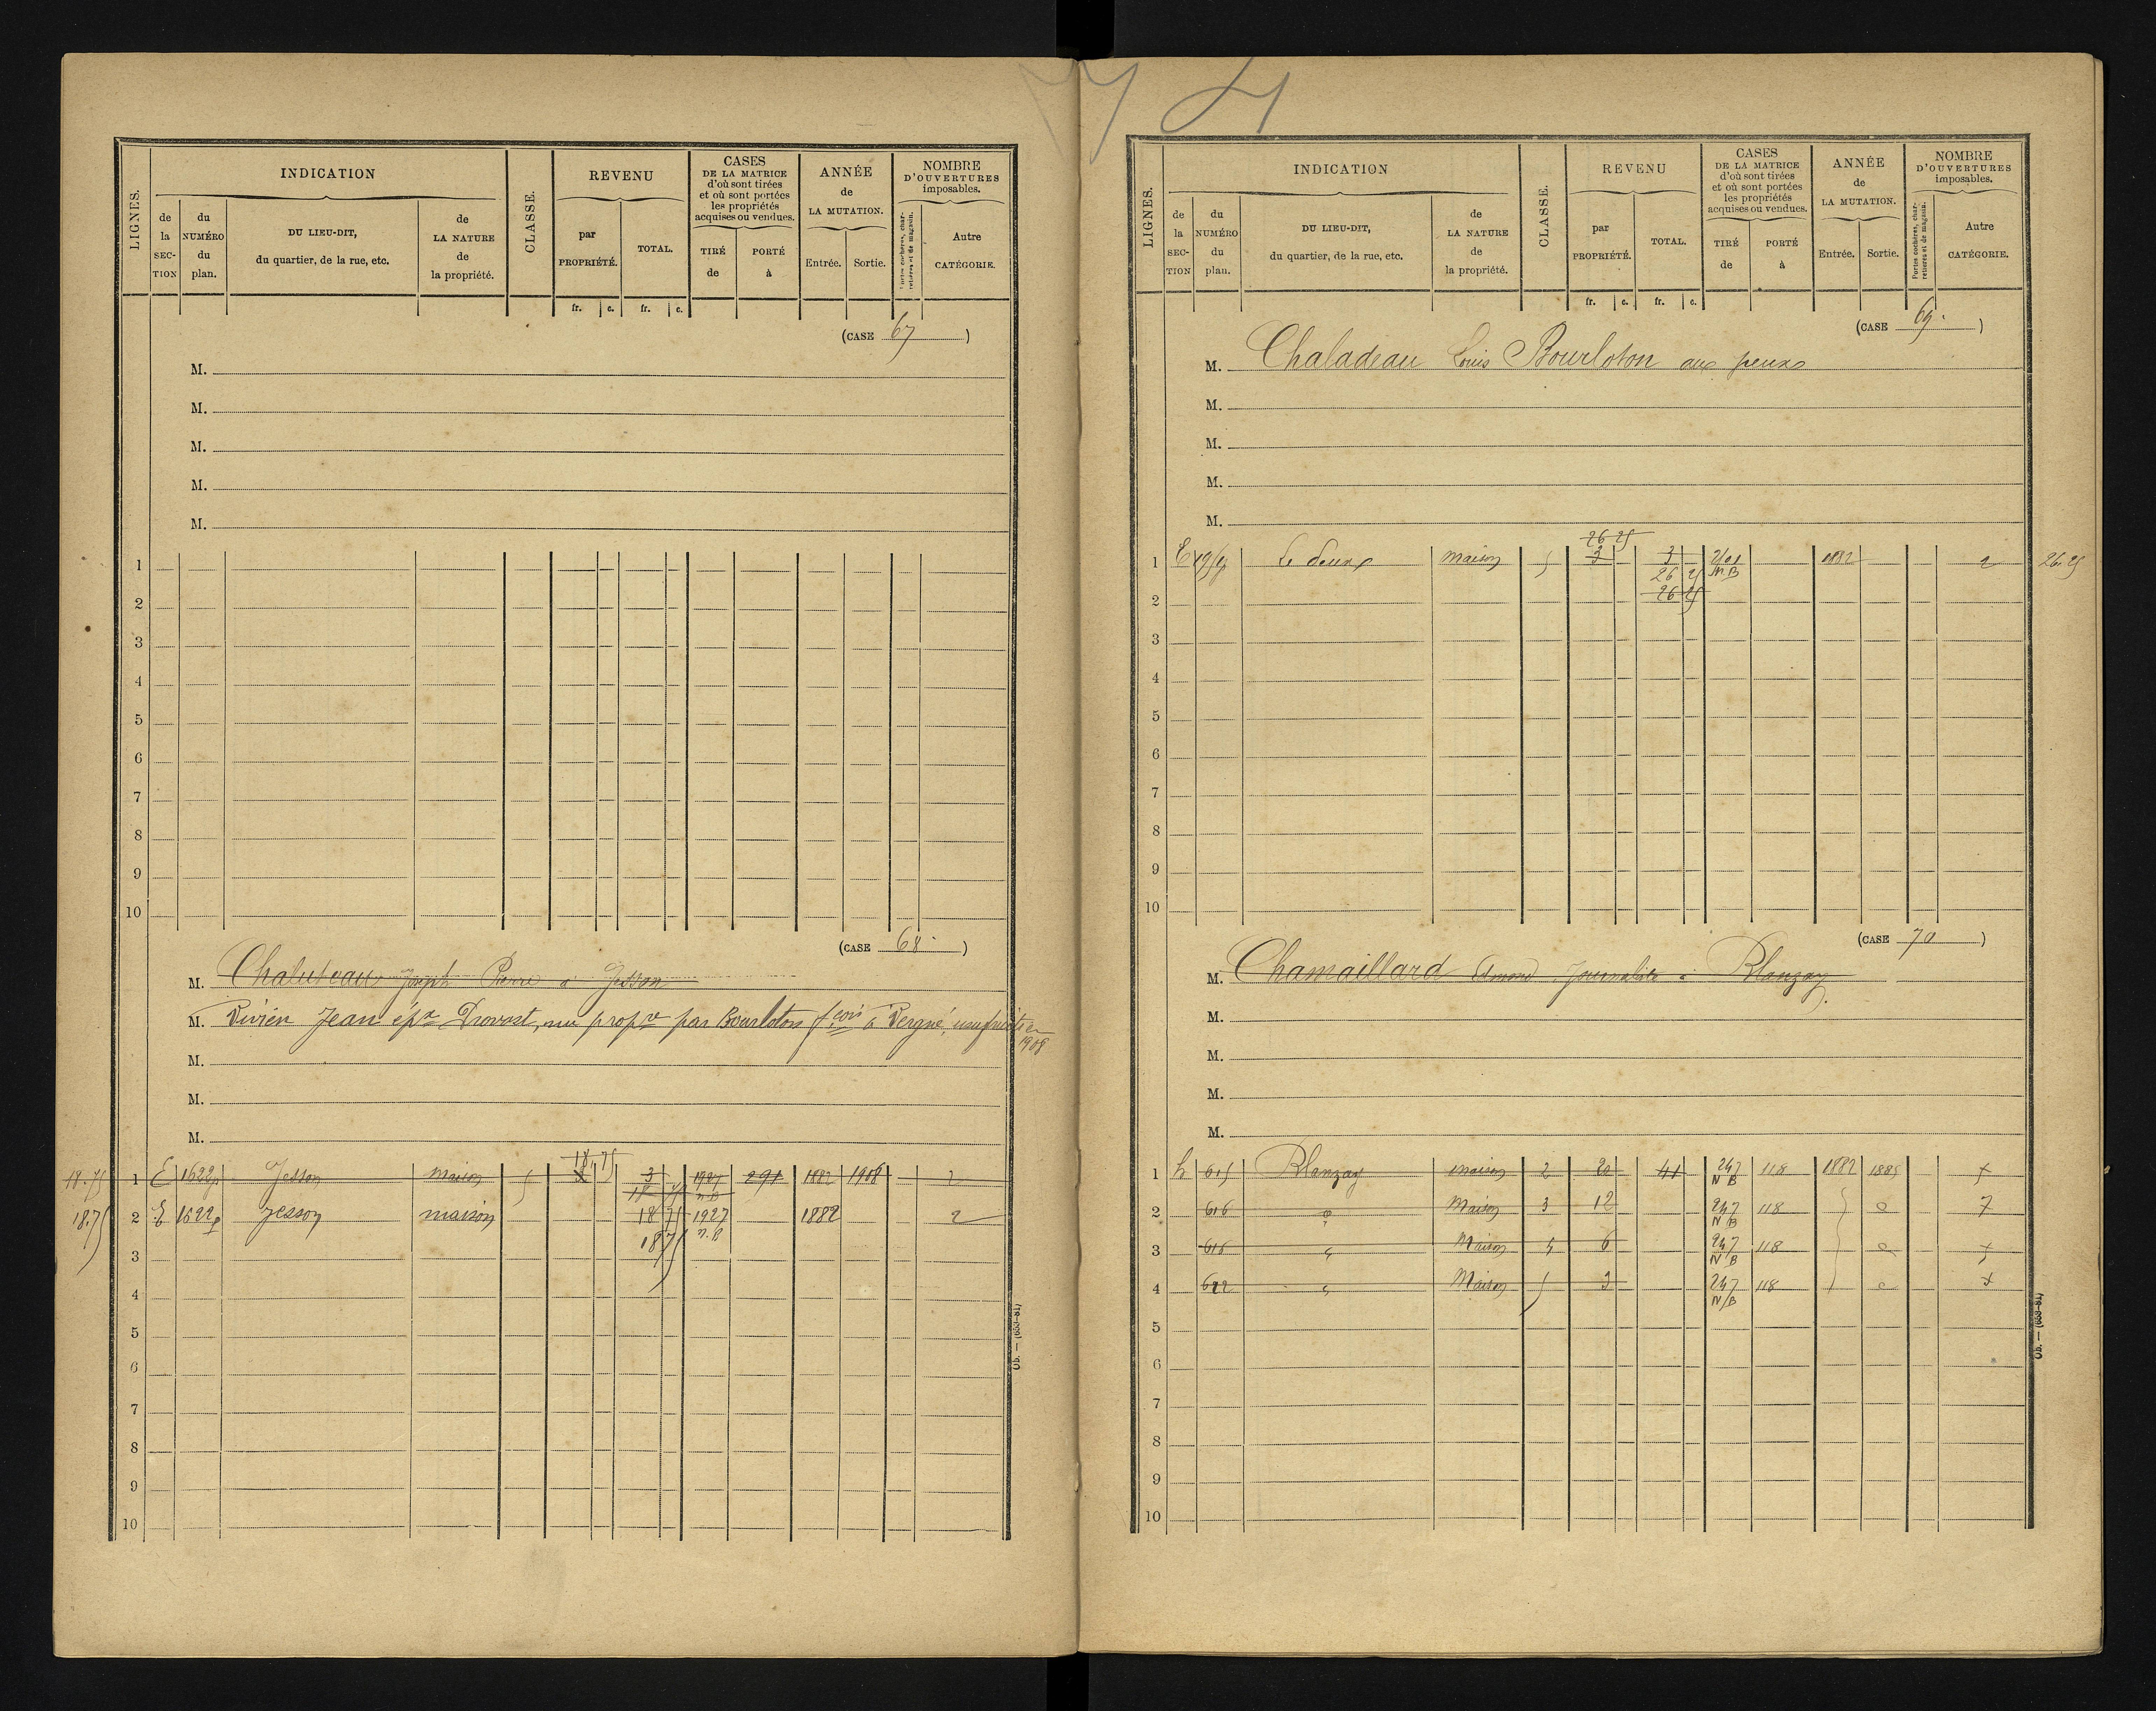 LIGNES.
INDICATION
de la SEC-TION
du NUMÉRO du plan.
DU LIEU-DIT, du quartier, de la rue, etc.
de LA NATURE de la propriété.
CLASSE.
REVENU
par PROPRIÉTÉ.
TOTAL.
CASES DE LA MATRICE d'où sont tirées et où sont portées les propriétés acquises ou vendues.
TIRÉ de
PORTÉ à
ANNÉE de LA MUTATION.
Entrée.
Sortie.
NOMBRE D'OUVERTURES imposables.
Portes cochères, charretières et de magasin.
Autre CATÉGORIE.
fr. c. fr. c.
(CASE 67)
M.
M.
M.
M.
M.
1
2
3
4
5
6
7
8
9
10
(CASE 68)
M. Chaluteau Joseph Pierre à Jesson
M. Vivien Jean épx Drovost, nu propre par Bourloton fcois à Vergné, usufruitier
1908
M.
M.
M.
18.75 1 E 1622p Jesson maison 5 3 18,75 3 1927 291 1882 1908 2
18 75 n.B
18.75 2 E 1622p Jesson maison 18 75 1927 1882 2
3 18 75 n.B
4
5
6
7
8
9
10
Ob. — (653-81)
74
LIGNES.
INDICATION
de la SEC-TION
du NUMÉRO du plan.
DU LIEU-DIT, du quartier, de la rue, etc.
de LA NATURE de la propriété.
CLASSE.
REVENU
par PROPRIÉTÉ.
TOTAL.
CASES DE LA MATRICE d'où sont tirées et où sont portées les propriétés acquises ou vendues.
TIRÉ de
PORTÉ à
ANNÉE de LA MUTATION.
Entrée.
Sortie.
NOMBRE D'OUVERTURES imposables.
Portes cochères, charretières et de magasin.
Autre CATÉGORIE.
fr. c. fr. c.
(CASE 69)
M. Chaladeau Louis Bourloton aux peux
M.
M.
M.
M.
26 25
1 E maison 5 3 3 1882 2 26.25
26 25 n.B
2 26 25
3
4
5
6
7
8
9
10
(CASE 70)
M. Chamaillard Amand Journalier à Blanzay
M.
M.
M.
M.
1 h 615 Blanzay maison 2 20 41 247 118 1882 1885 7
N B
2 616 Maison 3 12 247 118 7
N B
3 616 Maison 4 6 247 118 7
N B
4 622 Maison 5 3 247 118 7
N B
5
6
7
8
9
10
Ob. — (653-81)